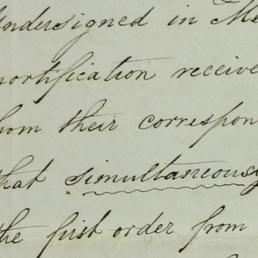 ndersigned in Me
ortification receive
hom their correspon
that simultaneous
the first order from